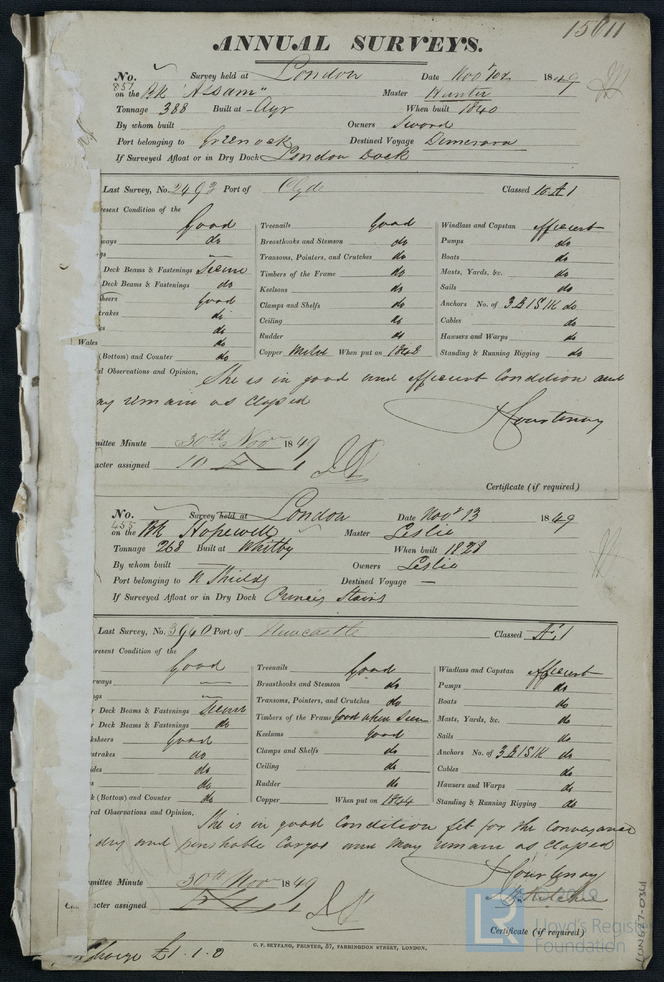 15011
ANNUAL SURVEYS.
No. 851 Survey held at London Date Novr 10th 1849
on the Bk "Assam" Master Hunter
Tonnage 388 Built at Ayr When built 1840
By whom built Owners Sword
Port belonging to Greenock Destined Voyage Demerara
If Surveyed Afloat or in Dry Dock London Dock
Last Survey, No. 2493 Port of Clyde Classed 10 A 1
resent Condition of the
Good Treenails Good Windlass and Capstan efficient
ways do Breasthooks and Stemson do Pumps do
gs — Transoms, Pointers, and Crutches do Boats do
Deck Beams & Fastenings Secure Timbers of the Frame do Masts, Yards, &c. do
Deck Beams & Fastenings do Keelsons do Sails do
sheers Good Clamps and Shelfs do Anchors No. of 3B 1S 1K do
trakes do Ceiling do Cables do
es do Rudder do Hawsers and Warps do
Wales do
(Bottom) and Counter do Copper Metal When put on 1848 Standing & Running Rigging do
al Observations and Opinion, She is in good and efficient Condition and
ay remain as classed
Courtenay
mittee Minute 30th Novr 1849
acter assigned 10 A 1
Certificate (if required)
No. 455 Survey held at London Date Novr 13 1849
on the Bk Hopewell Master Leslie
Tonnage 268 Built at Whitby When built 1828
By whom built Owners Leslie
Port belonging to N Shields Destined Voyage —
If Surveyed Afloat or in Dry Dock Princes Stairs
Last Survey, No. 3940 Port of Newcastle Classed Æ 1
resent Condition of the
Good Treenails Good Windlass and Capstan efficient
rways — Breasthooks and Stemson do Pumps do
ngs — Transoms, Pointers, and Crutches do Boats do
r Deck Beams & Fastenings Secure Timbers of the Frame Good when seen Masts, Yards, &c. do
r Deck Beams & Fastenings do Keelsons Good Sails do
ksheers Good Clamps and Shelfs do Anchors No. of 3B 1S 1K do
strakes do Ceiling do Cables do
ides do Rudder do Hawsers and Warps do
s do
k (Bottom) and Counter do Copper When put on 1844 Standing & Running Rigging do
ral Observations and Opinion, She is in good Condition fit for the Conveyance
dry and perishable Cargos and may remain as classed
Courtenay
mmittee Minute 30th Novr 1849
aracter assigned Æ 1
Certificate (if required)
Charge £1.1.0
G. F. SEYFANG, PRINTER, 57, FARRINGDON STREET, LONDON.
LR
© 2019
Lloyd's Register
Foundation
LON627-0361